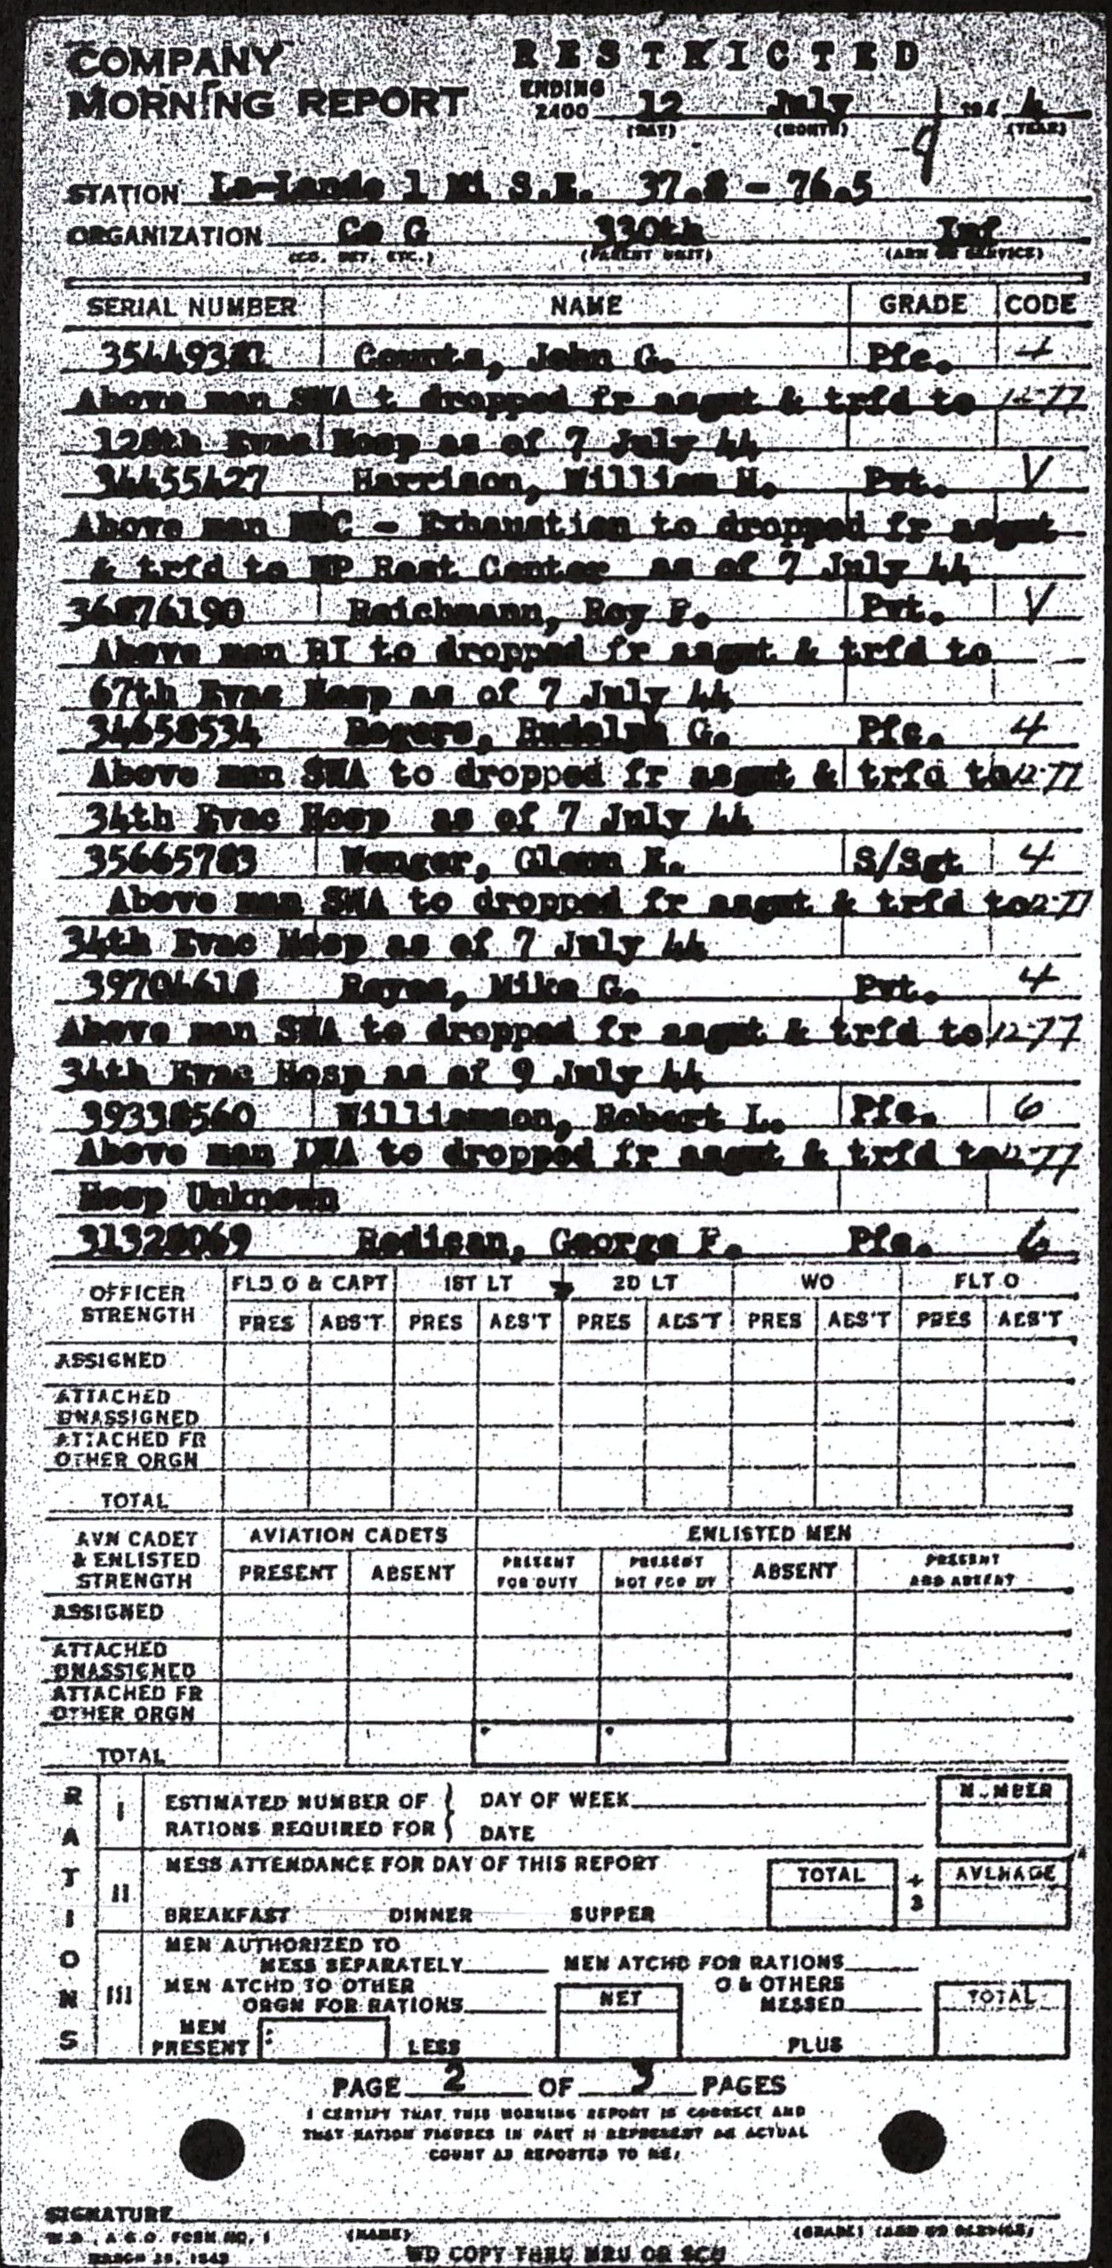 COMPANY RESTRICTED
MORNING REPORT ENDING 2400 12 July 194 4
(DAY) (MONTH) (YEAR)
STATION La-Lande 1 Mi S.E. 37.8 - 76.5
ORGANIZATION Co G 330th Inf
(CO. DET. ETC.) (PARENT UNIT) (ARM OR SERVICE)
SERIAL NUMBER NAME GRADE CODE
35449381 Counts, John G. Pfc. 4
Above man SWA t dropped fr asgmt & trfd to 12-77
128th Evac Hosp as of 7 July 44
34455427 Harrison, William H. Pvt. V
Above man NBC - Exhaustion to dropped fr asgmt
& trfd to MP Rest Center as of 7 July 44
36876190 Reichmann, Roy F. Pvt. V
Above man BI to dropped fr asgmt & trfd to
67th Evac Hosp as of 7 July 44
34658534 Rogers, Rudolph G. Pfc. 4
Above man SWA to dropped fr asgmt & trfd to 12-77
34th Evac Hosp as of 7 July 44
35665783 Wenger, Glenn E. S/Sgt 4
Above man SWA to dropped fr asgmt & trfd to 12-77
34th Evac Hosp as of 7 July 44
39704618 Reyes, Mike G. Pvt. 4
Above man SWA to dropped fr asgmt & trfd to 12-77
34th Evac Hosp as of 9 July 44
39338560 Williamson, Robert L. Pfc. 6
Above man LWA to dropped fr asgmt & trfd to 12-77
Hosp Unknown
31328069 Redican, George F. Pfc. 6
OFFICER STRENGTH FLD O & CAPT 1ST LT 2D LT WO FLT O
PRES ABS'T PRES ABS'T PRES ABS'T PRES ABS'T PRES ABS'T
ASSIGNED
ATTACHED
UNASSIGNED
ATTACHED FR
OTHER ORGN
TOTAL
AVN CADET & ENLISTED STRENGTH AVIATION CADETS ENLISTED MEN
PRESENT ABSENT PRESENT FOR DUTY PRESENT NOT FOR DY ABSENT PRESENT AND ABSENT
ASSIGNED
ATTACHED
UNASSIGNED
ATTACHED FR
OTHER ORGN
TOTAL
RATIONS
I ESTIMATED NUMBER OF DAY OF WEEK NUMBER
RATIONS REQUIRED FOR DATE
II MESS ATTENDANCE FOR DAY OF THIS REPORT TOTAL ÷ 3 AVERAGE
BREAKFAST DINNER SUPPER
III MEN AUTHORIZED TO
MESS SEPARATELY MEN ATCHD FOR RATIONS
MEN ATCHD TO OTHER O & OTHERS
ORGN FOR RATIONS NET MESSED TOTAL
MEN
PRESENT LESS PLUS
PAGE 2 OF 3 PAGES
I CERTIFY THAT THIS MORNING REPORT IS CORRECT AND
THAT RATION FIGURES IN PART II REPRESENT AN ACTUAL
COUNT AS REPORTED TO ME:
SIGNATURE
W.D., A.G.O. FORM NO. 1 (NAME) (GRADE) (ARM OR SERVICE)
MARCH 25, 1943 WD COPY THRU MRU OR SCU